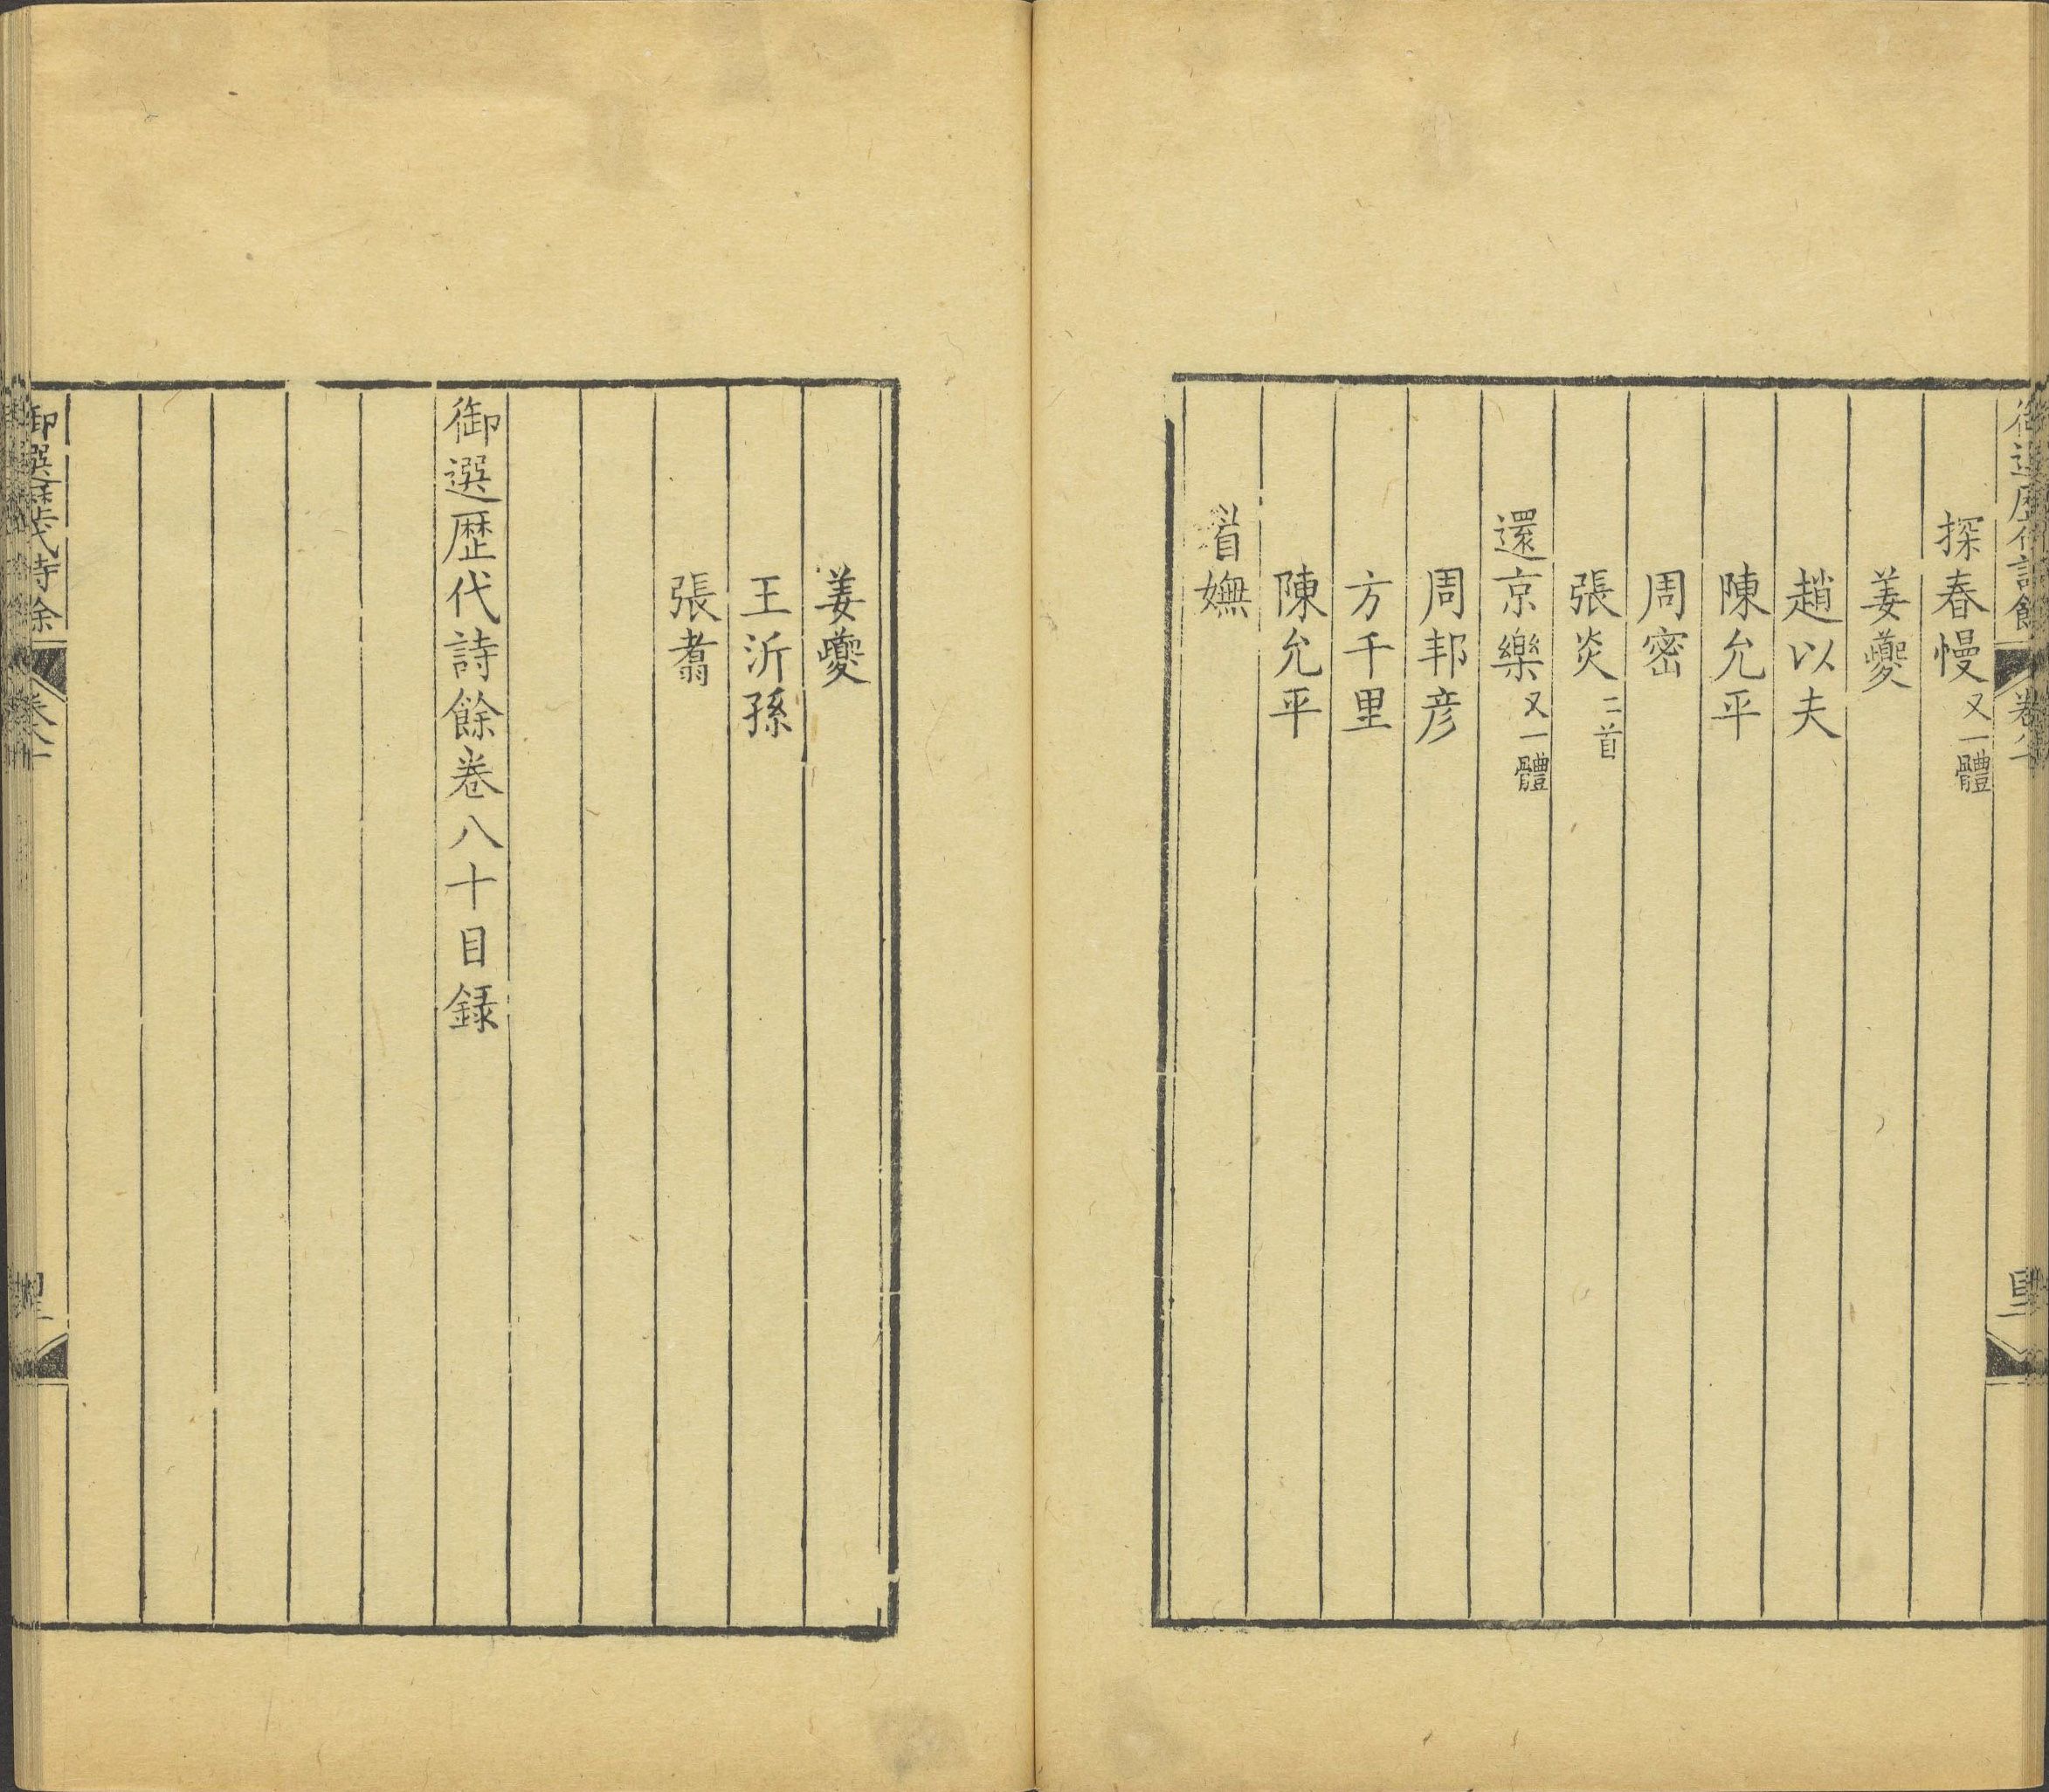 御選歴代詩餘 卷八
探春慢又一體
姜夔
趙以夫
陳允平
周密
張炎二首
還京樂又一體
周邦彦
方千里
陳允平
眉嫵
姜夔
王沂孫
張翥
御選歴代詩餘卷八十目録
御選歴代詩餘 卷八十